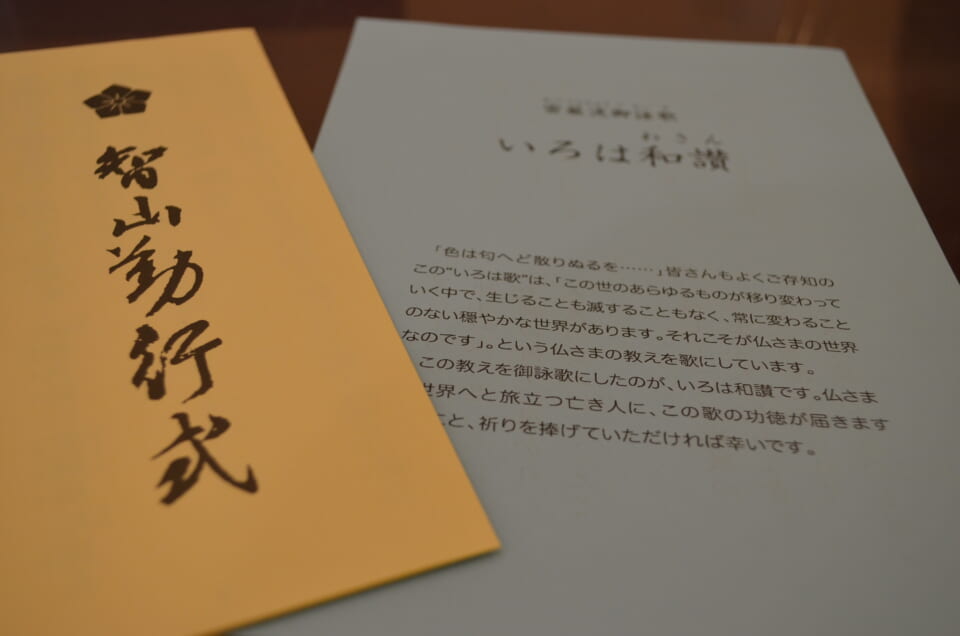 智山勤行式
密厳流御詠歌
いろは和讃
わさん
「色は匂へど散りぬるを……」皆さんもよくご存知の
この"いろは歌"は、「この世のあらゆるものが移り変わって
いく中で、生じることも滅することもなく、常に変わること
のない穏やかな世界があります。それこそが仏さまの世界
なのです」。という仏さまの教えを歌にしています。
この教えを御詠歌にしたのが、いろは和讃です。仏さま
世界へと旅立つ亡き人に、この歌の功徳が届きます
こと、祈りを捧げていただければ幸いです。